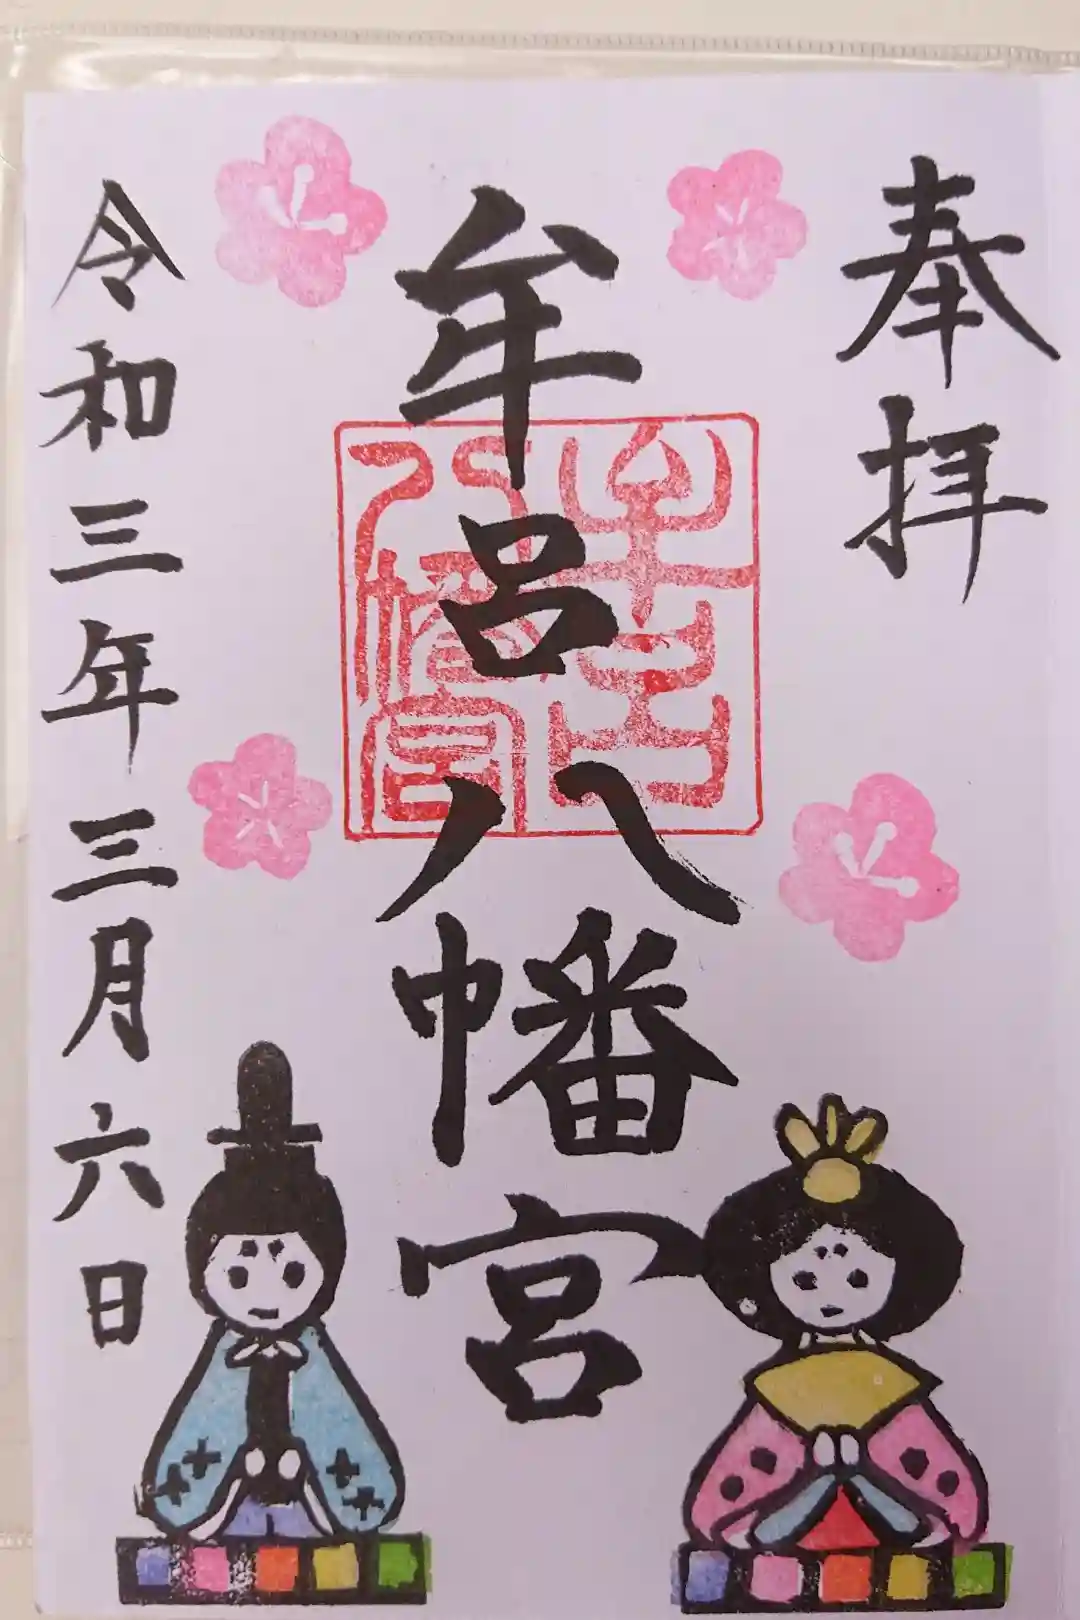 奉拝
牟呂八幡宮
牟呂八幡宮
令和三年三月六日